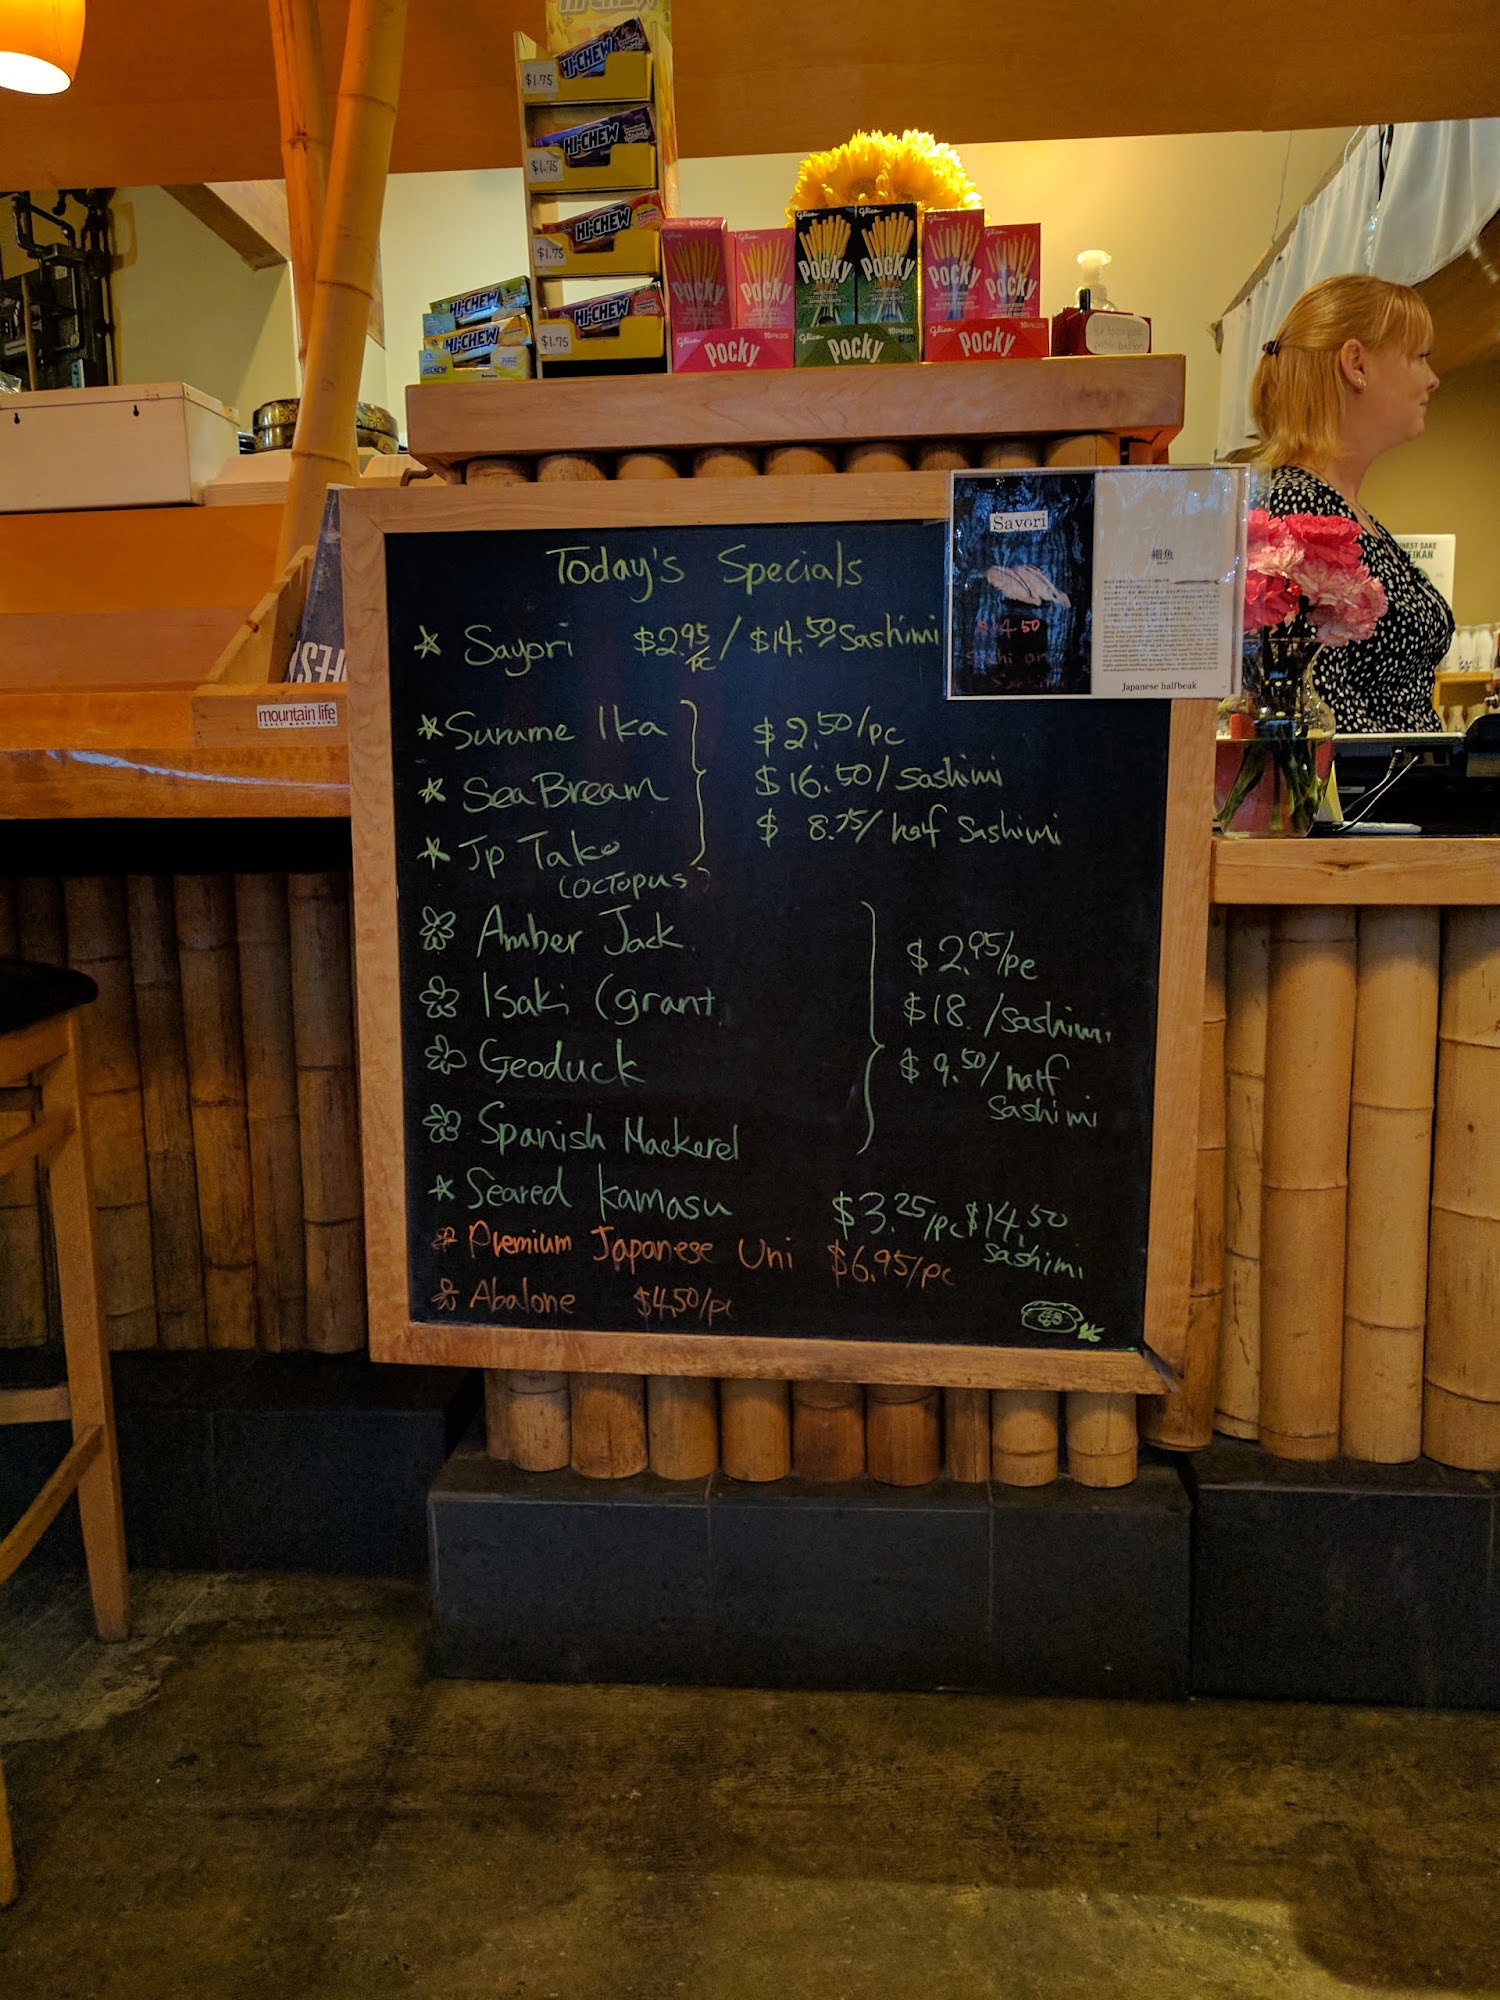 HI-CHEW
$1.75
HI-CHEW
$1.75
HI-CHEW
$1.75
HI-CHEW
$1.75
HI-CHEW
HI-CHEW
HI-CHEW
Glico
POCKY
POCKY
POCKY
Glico POCKY
Glico POCKY
Glico POCKY
POCKY
POCKY
Glico POCKY 10PKGS
Glico POCKY 10PKGS
Glico POCKY 10PKGS
INEST SAKE
EIKAN
mountain life
COAST MOUNTAINS
Sayori
$14.50
細魚
Japanese halfbeak
Today's Specials
Sayori $2.95/pc / $14.50 Sashimi
Surume Ika
Sea Bream
Jp Tako
(octopus)
$2.50/pc
$16.50/sashimi
$8.75/half Sashimi
Amber Jack
Isaki (grant
Geoduck
Spanish Mackerel
$2.95/pc
$18./sashimi
$9.50/half
Sashimi
Seared Kamasu $3.25/pc $14.50
Sashimi
Premium Japanese Uni $6.95/pc
Abalone $4.50/pc